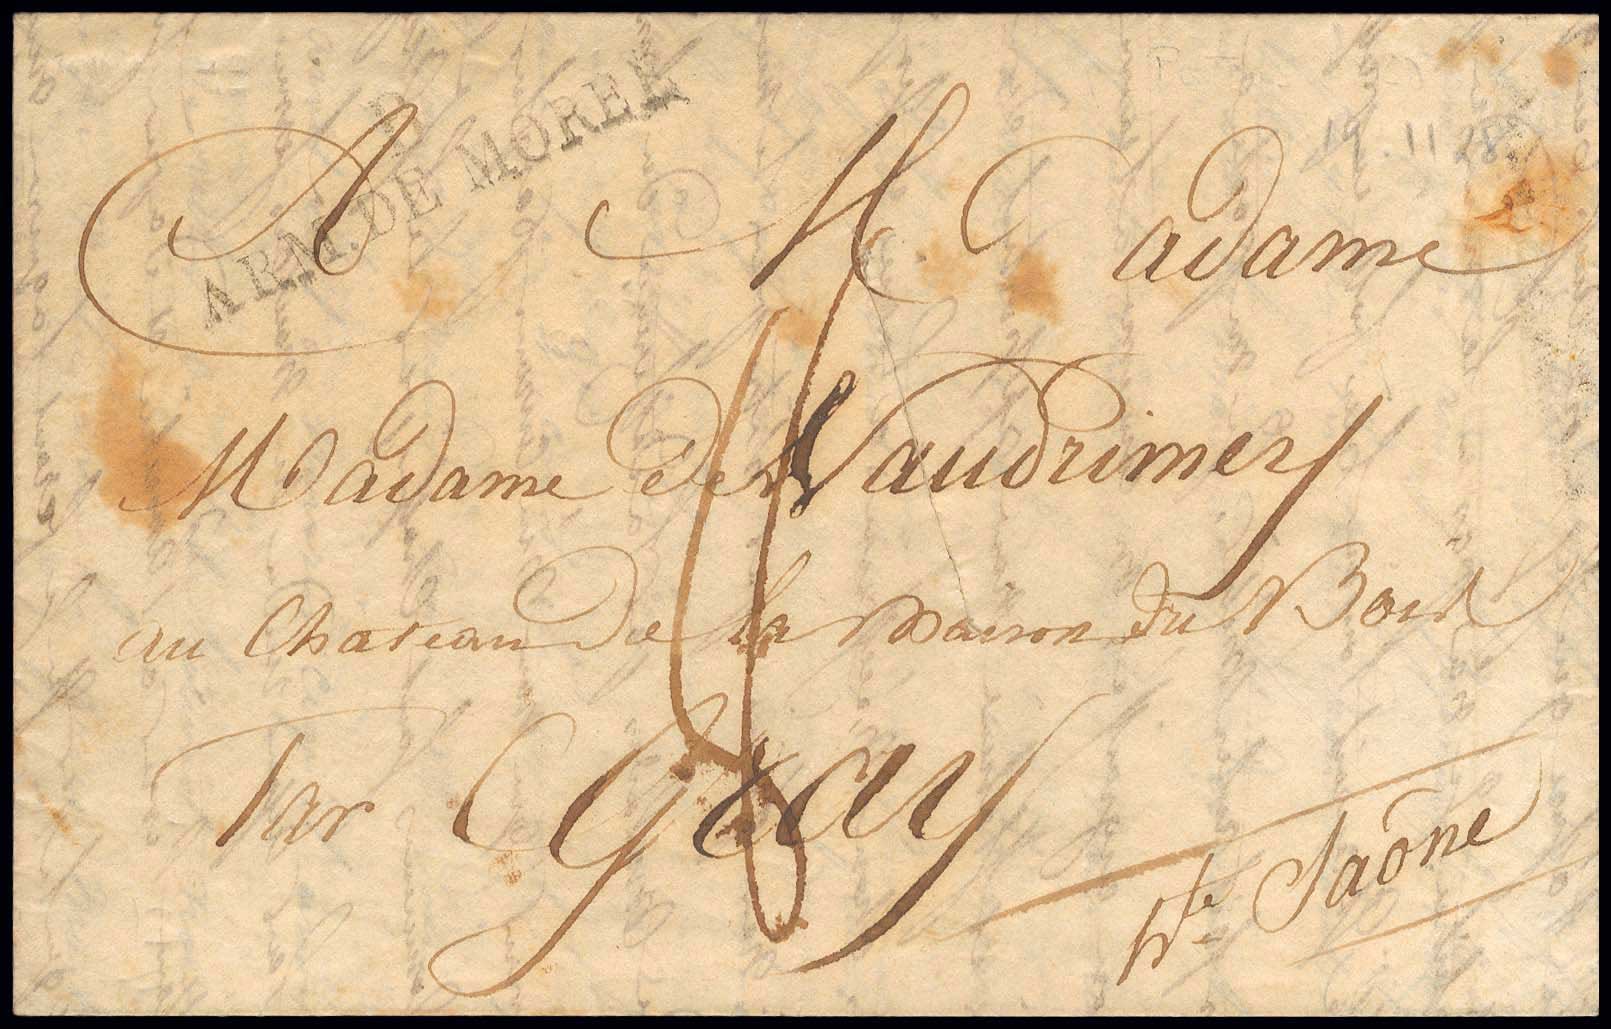 B
ARM. DE MOREE
19.11 28
A Madame
Madame de Vaudrimey
au Chateau de la Maison du Bois
Par Gray
hte Saône